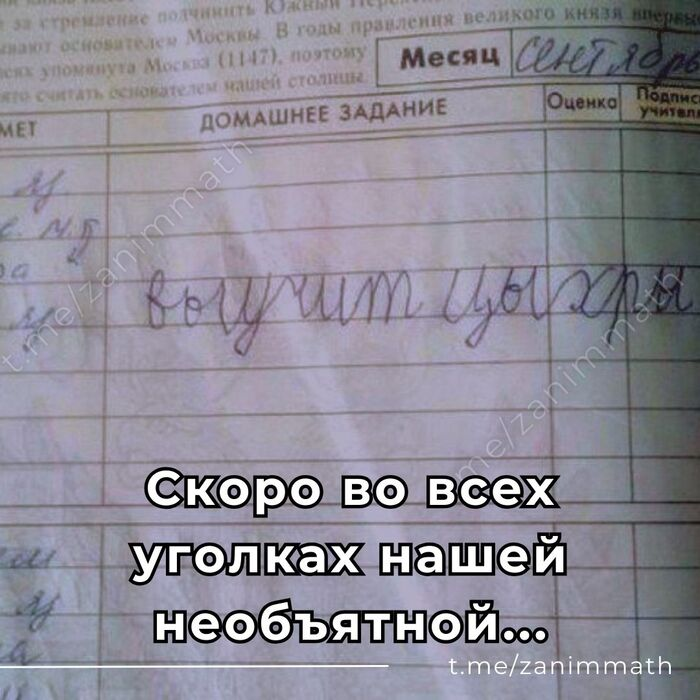 за стремление подчинить Южный
основателем Москвы. В годы правления великого князя впервые
упомянута Москва (1147), поэтому
считать основателем нашей столицы.
Месяц Сентябрь
МЕТ ДОМАШНЕЕ ЗАДАНИЕ Оценка Подпись учителя
выучит цыхры
Скоро во всех
уголках нашей
необъятной...
t.me/zanimmath
t.me/zanimmath
t.me/zanimmath